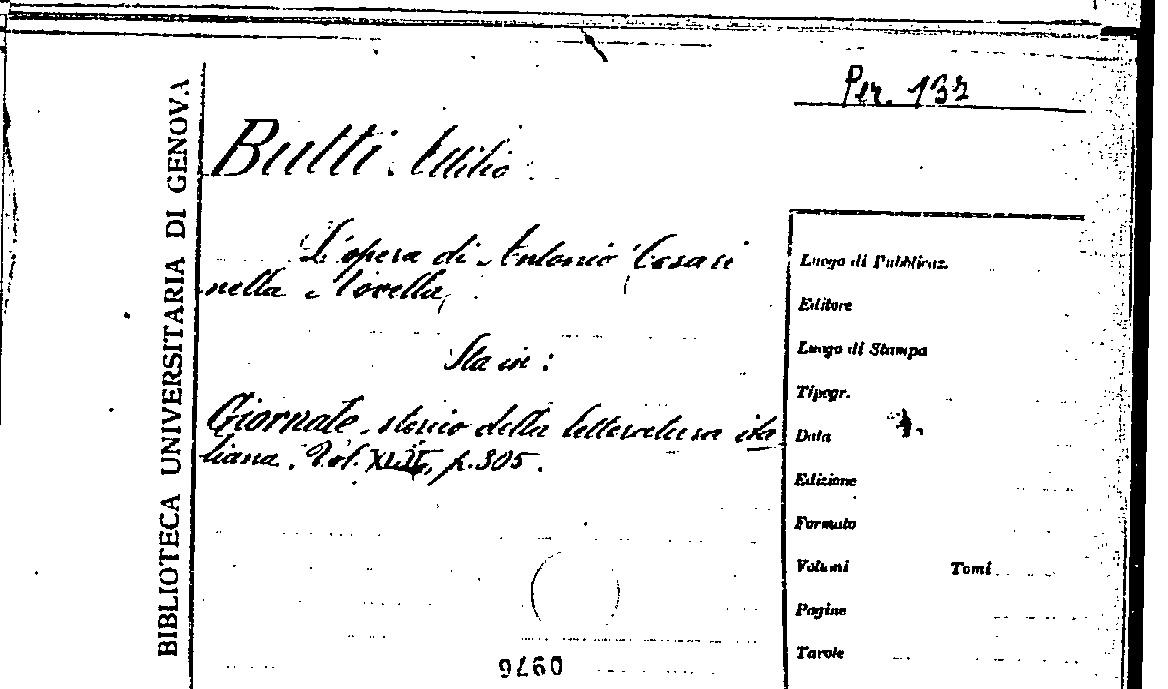 Per. 132
BIBLIOTECA UNIVERSITARIA DI GENOVA
Butti. Attilio
L'opera di Antonio Cesari
nella Novella,
Sta in:
Giornale storico della letteratura ita
liana. Vol. p. 305.
Luogo di Pubblicaz.
Editore
Luogo di Stampa
Tipogr.
Data
Edizione
Formato
Volumi Tomi
Pagine
Tavole
0976